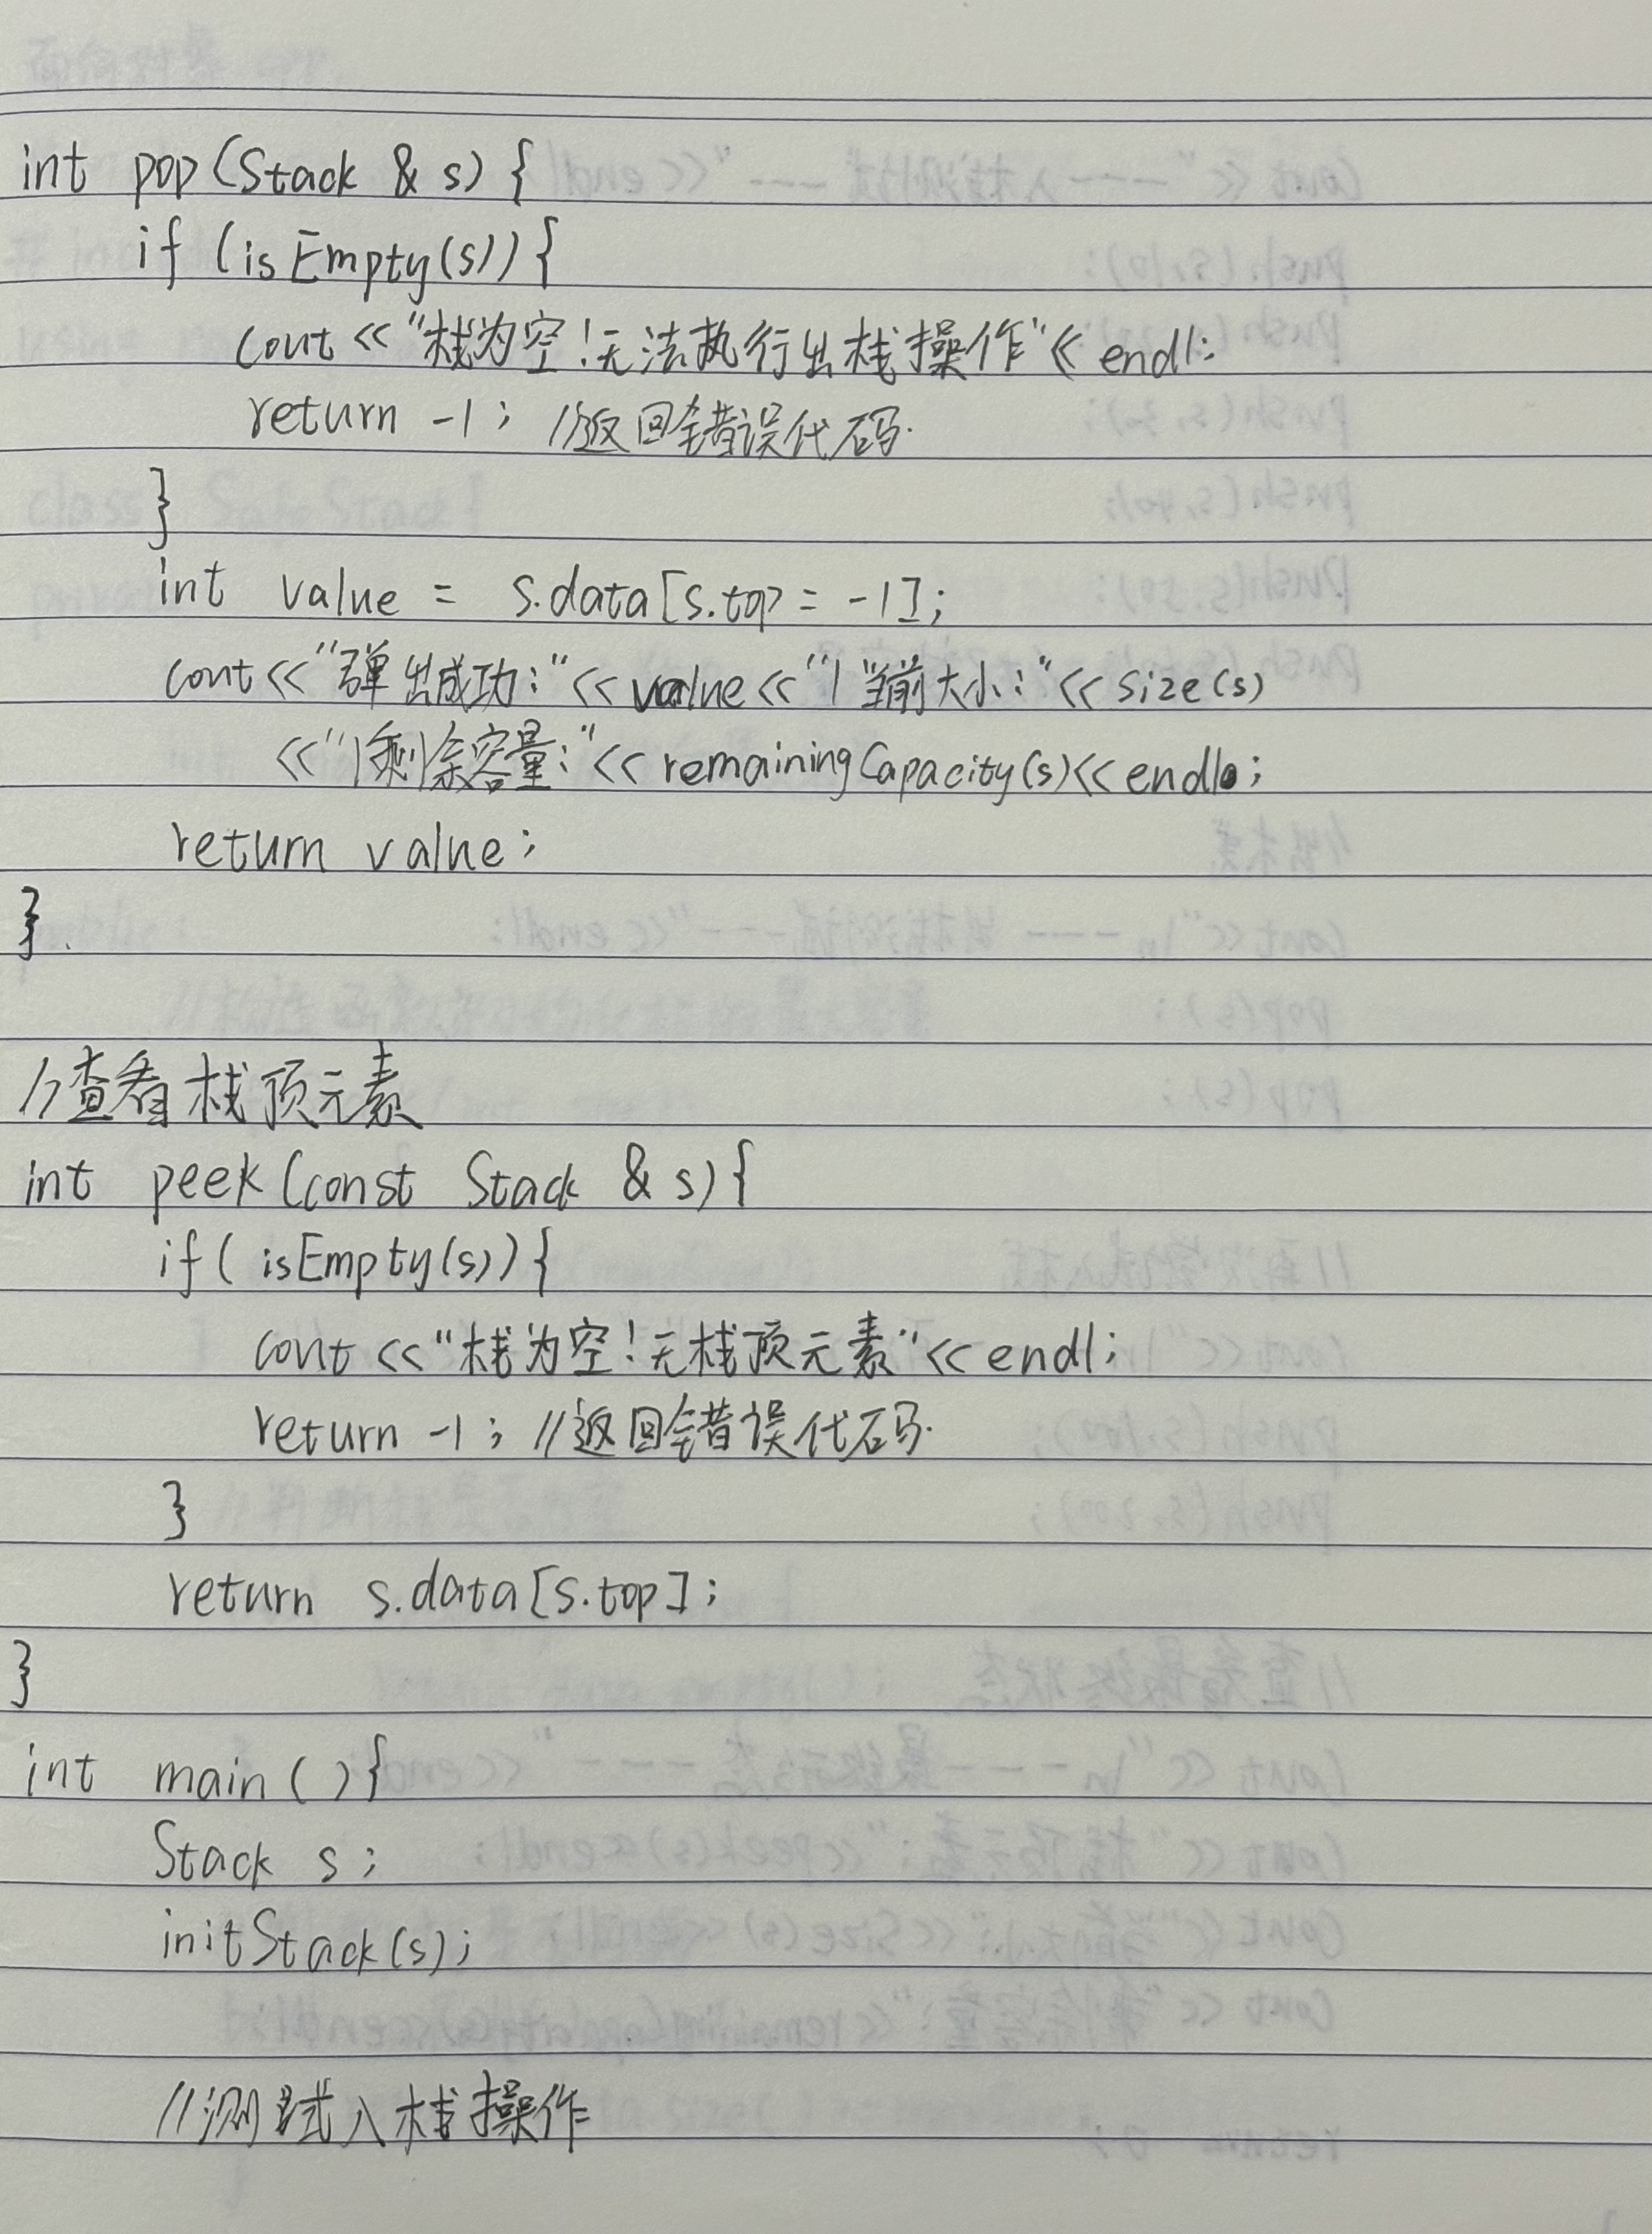 int pop(Stack & s) {
if (isEmpty(s)){
cout << "栈为空!无法执行出栈操作"<< endl;
return -1; //返回错误代码.
}
int value = s.data[s.top = -1];
cout<<"弹出成功:"<<value<<"|当前大小:"<<size(s)
<<"|剩余容量:"<<remainingCapacity(s)<<endl;
return value;
}
//查看栈顶元素
int peek(const Stack & s){
if( isEmpty(s)){
cout <<"栈为空!无栈顶元素"<< endl;
return -1; //返回错误代码.
}
return s.data[s.top];
}
int main(){
Stack s;
initStack(s);
//测试入栈操作